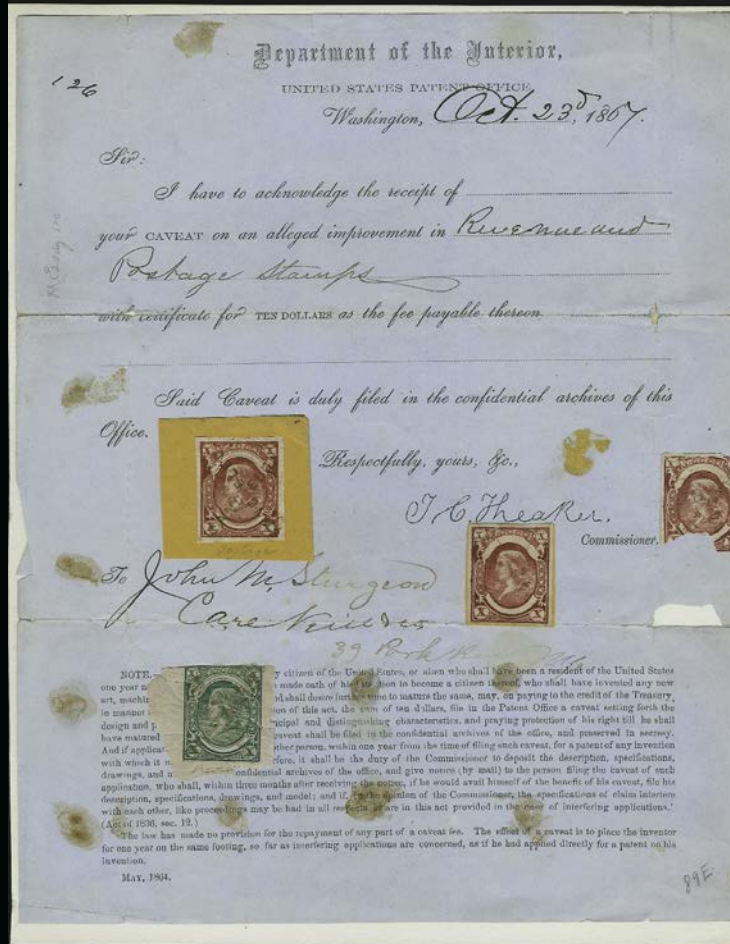 Department of the Interior,
126
UNITED STATES PATENT OFFICE
Washington, Oct. 23d, 1867.
Sir:
I have to acknowledge the receipt of
your CAVEAT on an alleged improvement in Revenue and
Postage Stamps
with certificate for TEN DOLLARS as the fee payable thereon.
Said Caveat is duly filed in the confidential archives of this
Office.
Respectfully, yours, &c.,
T. C. Theaker.
Commissioner.
To John M. Sturgeon
Care
39 Park
NOTE. y citizen of the United States, or alien who shall have been a resident of the United States
one year made oath of his to become a citizen thereof, who shall have invented any new
art, machin d shall desire further time to mature the same, may, on paying to the credit of the Treasury,
in manner on of this act, the sum of ten dollars, file in the Patent Office a caveat setting forth the
design and p ncipal and distinguishing characteristics, and praying protection of his right till he shall
have matured caveat shall be filed in the confidential archives of the office, and preserved in secrecy.
And if applicat other person, within one year from the time of filing such caveat, for a patent of any invention
with which it refore, it shall be the duty of the Commissioner to deposit the description, specifications,
drawings, and confidential archives of the office, and give notice (by mail) to the person filing the caveat of such
application, who shall, within three months after receiving the notice, if he would avail himself of the benefit of his caveat, file his
description, specifications, drawings, and model; and if, in the opinion of the Commissioner, the specifications of claim interfere
with each other, like proceedings may be had in all respects as are in this act provided in the case of interfering applications.'
(Act of 1836, sec. 12.)
The law has made no provision for the repayment of any part of a caveat fee. The effect of a caveat is to place the inventor
for one year on the same footing, so far as interfering applications are concerned, as if he had applied directly for a patent on his
invention.
MAY, 1864.
89E